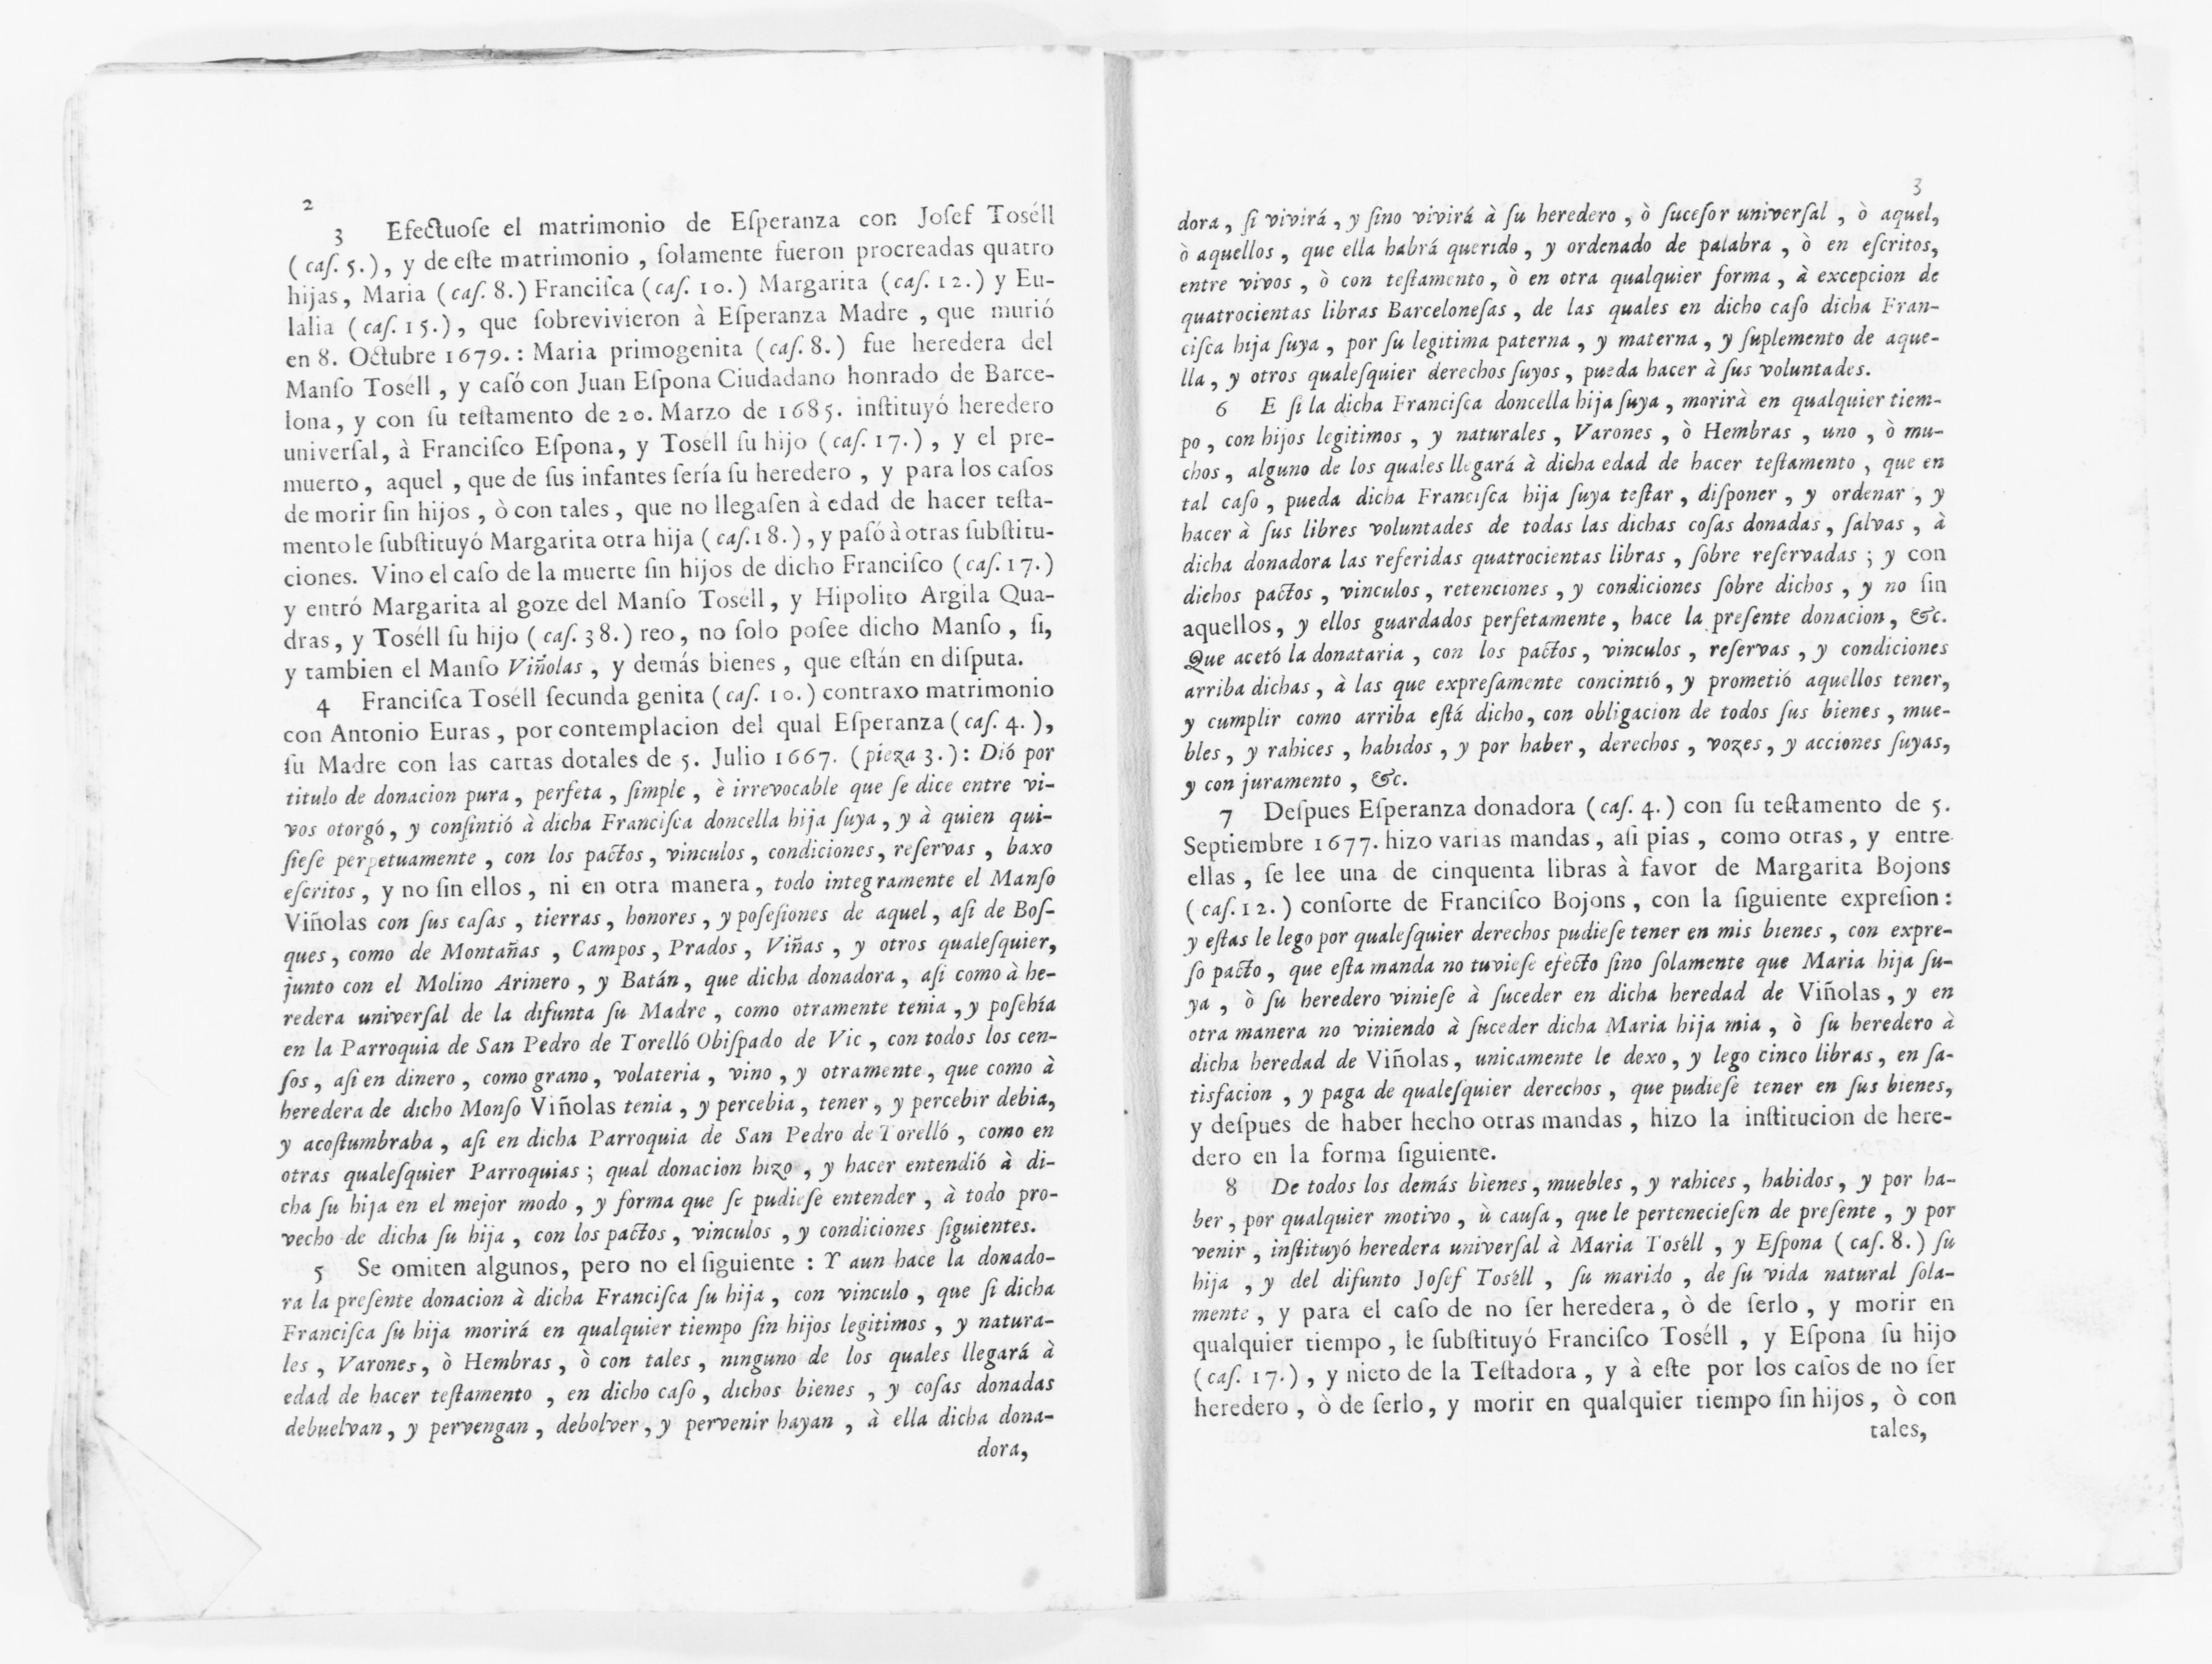 2
3 Efectuoſe el matrimonio de Eſperanza con Joſef Toséll
(caſ. 5.), y de eſte matrimonio, ſolamente fueron procreadas quatro
hijas, Maria (caſ. 8.) Franciſca (caſ. 10.) Margarita (caſ. 12.) y Eu-
lalia (caſ. 15.), que ſobrevivieron à Eſperanza Madre, que murió
en 8. Octubre 1679.: Maria primogenita (caſ. 8.) fue heredera del
Manſo Toséll, y caſó con Juan Eſpona Ciudadano honrado de Barce-
lona, y con ſu teſtamento de 20. Marzo de 1685. inſtituyó heredero
univerſal, à Franciſco Eſpona, y Toséll ſu hijo (caſ. 17.), y el pre-
muerto, aquel, que de ſus infantes ſería ſu heredero, y para los caſos
de morir ſin hijos, ò con tales, que no llegaſen à edad de hacer teſta-
mento le ſubſtituyó Margarita otra hija (caſ. 18.), y paſó à otras ſubſtitu-
ciones. Vino el caſo de la muerte ſin hijos de dicho Franciſco (caſ. 17.)
y entró Margarita al goze del Manſo Toséll, y Hipolito Argila Qua-
dras, y Toséll ſu hijo (caſ. 38.) reo, no ſolo poſee dicho Manſo, ſi,
y tambien el Manſo Viñolas, y demás bienes, que eſtán en diſputa.
4 Franciſca Toséll ſecunda genita (caſ. 10.) contraxo matrimonio
con Antonio Euras, por contemplacion del qual Eſperanza (caſ. 4.),
ſu Madre con las cartas dotales de 5. Julio 1667. (pieza 3.): Dió por
titulo de donacion pura, perfeta, ſimple, è irrevocable que ſe dice entre vi-
vos otorgó, y conſintió à dicha Franciſca doncella hija ſuya, y à quien qui-
ſieſe perpetuamente, con los pactos, vinculos, condiciones, reſervas, baxo
eſcritos, y no ſin ellos, ni en otra manera, todo integramente el Manſo
Viñolas con ſus caſas, tierras, honores, y poſeſiones de aquel, aſi de Boſ-
ques, como de Montañas, Campos, Prados, Viñas, y otros qualeſquier,
junto con el Molino Arinero, y Batán, que dicha donadora, aſi como à he-
redera univerſal de la difunta ſu Madre, como otramente tenia, y poſehía
en la Parroquia de San Pedro de Torelló Obiſpado de Vic, con todos los cen-
ſos, aſi en dinero, como grano, volateria, vino, y otramente, que como à
heredera de dicho Monſo Viñolas tenia, y percebia, tener, y percebir debia,
y acoſtumbraba, aſi en dicha Parroquia de San Pedro de Torelló, como en
otras qualeſquier Parroquias; qual donacion hizo, y hacer entendió à di-
cha ſu hija en el mejor modo, y forma que ſe pudieſe entender, à todo pro-
vecho de dicha ſu hija, con los pactos, vinculos, y condiciones ſiguientes.
5 Se omiten algunos, pero no el ſiguiente: Y aun hace la donado-
ra la preſente donacion à dicha Franciſca ſu hija, con vinculo, que ſi dicha
Franciſca ſu hija morirá en qualquier tiempo ſin hijos legitimos, y natura-
les, Varones, ò Hembras, ò con tales, ninguno de los quales llegará à
edad de hacer teſtamento, en dicho caſo, dichos bienes, y coſas donadas
debuelvan, y pervengan, debolver, y pervenir hayan, à ella dicha dona-
dora,
3
dora, ſi vivirá, y ſino vivirá à ſu heredero, ò ſuceſor univerſal, ò aquel,
ò aquellos, que ella habrá querido, y ordenado de palabra, ò en eſcritos,
entre vivos, ò con teſtamento, ò en otra qualquier forma, à excepcion de
quatrocientas libras Barceloneſas, de las quales en dicho caſo dicha Fran-
ciſca hija ſuya, por ſu legitima paterna, y materna, y ſuplemento de aque-
lla, y otros qualeſquier derechos ſuyos, pueda hacer à ſus voluntades.
6 E ſi la dicha Franciſca doncella hija ſuya, morirà en qualquier tiem-
po, con hijos legitimos, y naturales, Varones, ò Hembras, uno, ò mu-
chos, alguno de los quales llegará à dicha edad de hacer teſtamento, que en
tal caſo, pueda dicha Franciſca hija ſuya teſtar, diſponer, y ordenar, y
hacer à ſus libres voluntades de todas las dichas coſas donadas, ſalvas, à
dicha donadora las referidas quatrocientas libras, ſobre reſervadas; y con
dichos pactos, vinculos, retenciones, y condiciones ſobre dichos, y no ſin
aquellos, y ellos guardados perfetamente, hace la preſente donacion, &c.
Que acetó la donataria, con los pactos, vinculos, reſervas, y condiciones
arriba dichas, à las que expreſamente concintió, y prometió aquellos tener,
y cumplir como arriba eſtá dicho, con obligacion de todos ſus bienes, mue-
bles, y rahices, habidos, y por haber, derechos, vozes, y acciones ſuyas,
y con juramento, &c.
7 Deſpues Eſperanza donadora (caſ. 4.) con ſu teſtamento de 5.
Septiembre 1677. hizo varias mandas, aſi pias, como otras, y entre
ellas, ſe lee una de cinquenta libras à favor de Margarita Bojons
(caſ. 12.) conſorte de Franciſco Bojons, con la ſiguiente expreſion:
y eſtas le lego por qualeſquier derechos pudieſe tener en mis bienes, con expre-
ſo pacto, que eſta manda no tuvieſe efecto ſino ſolamente que Maria hija ſu-
ya, ò ſu heredero vinieſe à ſuceder en dicha heredad de Viñolas, y en
otra manera no viniendo à ſuceder dicha Maria hija mia, ò ſu heredero à
dicha heredad de Viñolas, unicamente le dexo, y lego cinco libras, en ſa-
tisfacion, y paga de qualeſquier derechos, que pudieſe tener en ſus bienes,
y deſpues de haber hecho otras mandas, hizo la inſtitucion de here-
dero en la forma ſiguiente.
8 De todos los demás bienes, muebles, y rahices, habidos, y por ha-
ber, por qualquier motivo, ù cauſa, que le pertenecieſen de preſente, y por
venir, inſtituyó heredera univerſal à Maria Toséll, y Eſpona (caſ. 8.) ſu
hija, y del difunto Joſef Toséll, ſu marido, de ſu vida natural ſola-
mente, y para el caſo de no ſer heredera, ò de ſerlo, y morir en
qualquier tiempo, le ſubſtituyó Franciſco Toséll, y Eſpona ſu hijo
(caſ. 17.), y nieto de la Teſtadora, y à eſte por los caſos de no ſer
heredero, ò de ſerlo, y morir en qualquier tiempo ſin hijos, ò con
tales,